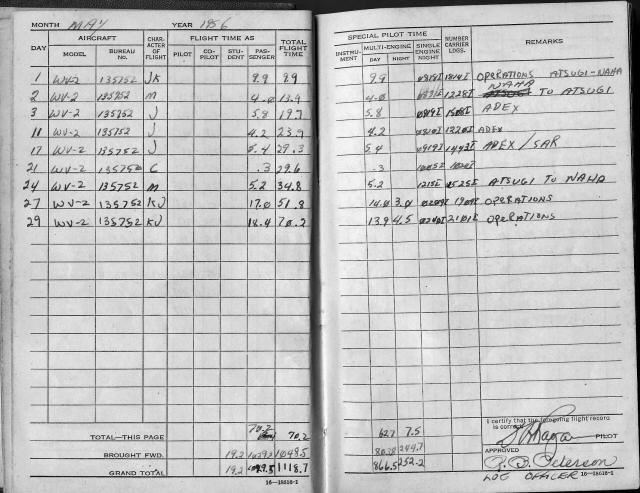 MONTH MAY YEAR 1956
DAY AIRCRAFT MODEL BUREAU No. CHARACTER OF FLIGHT FLIGHT TIME AS PILOT CO-PILOT STUDENT PASSENGER TOTAL FLIGHT TIME
1 WV-2 135752 JK 9.9 9.9
2 WV-2 135752 M 4.0 13.9
3 WV-2 135752 J 5.8 19.7
11 WV-2 135752 J 4.2 23.9
17 WV-2 135752 J 5.4 29.3
21 WV-2 135752 C .3 29.6
24 WV-2 135752 M 5.2 34.8
27 WV-2 135752 KJ 17.0 51.8
29 WV-2 135752 KJ 18.4 70.2
TOTAL—THIS PAGE 70.2 70.2
BROUGHT FWD. 19.2 1048.5
GRAND TOTAL 19.2 1118.7
16—18618-1
SPECIAL PILOT TIME
INSTRUMENT MULTI-ENGINE DAY NIGHT SINGLE ENGINE NIGHT NUMBER CARRIER LDGS. REMARKS
9.9 OPERATIONS ATSUGI-NAHA
4.0 1228I NAHA TO ATSUGI
5.8 ADEX
4.2 ADEX
5.4 ADEX/SAR
.3
5.2 ATSUGI TO NAHA
14.0 3.0 OPERATIONS
13.9 4.5 OPERATIONS
62.7 7.5
244.7
866.5 252.2
I certify that the foregoing flight record is correct.
PILOT
APPROVED
Peterson
LOG OFFICER
16—18618-1